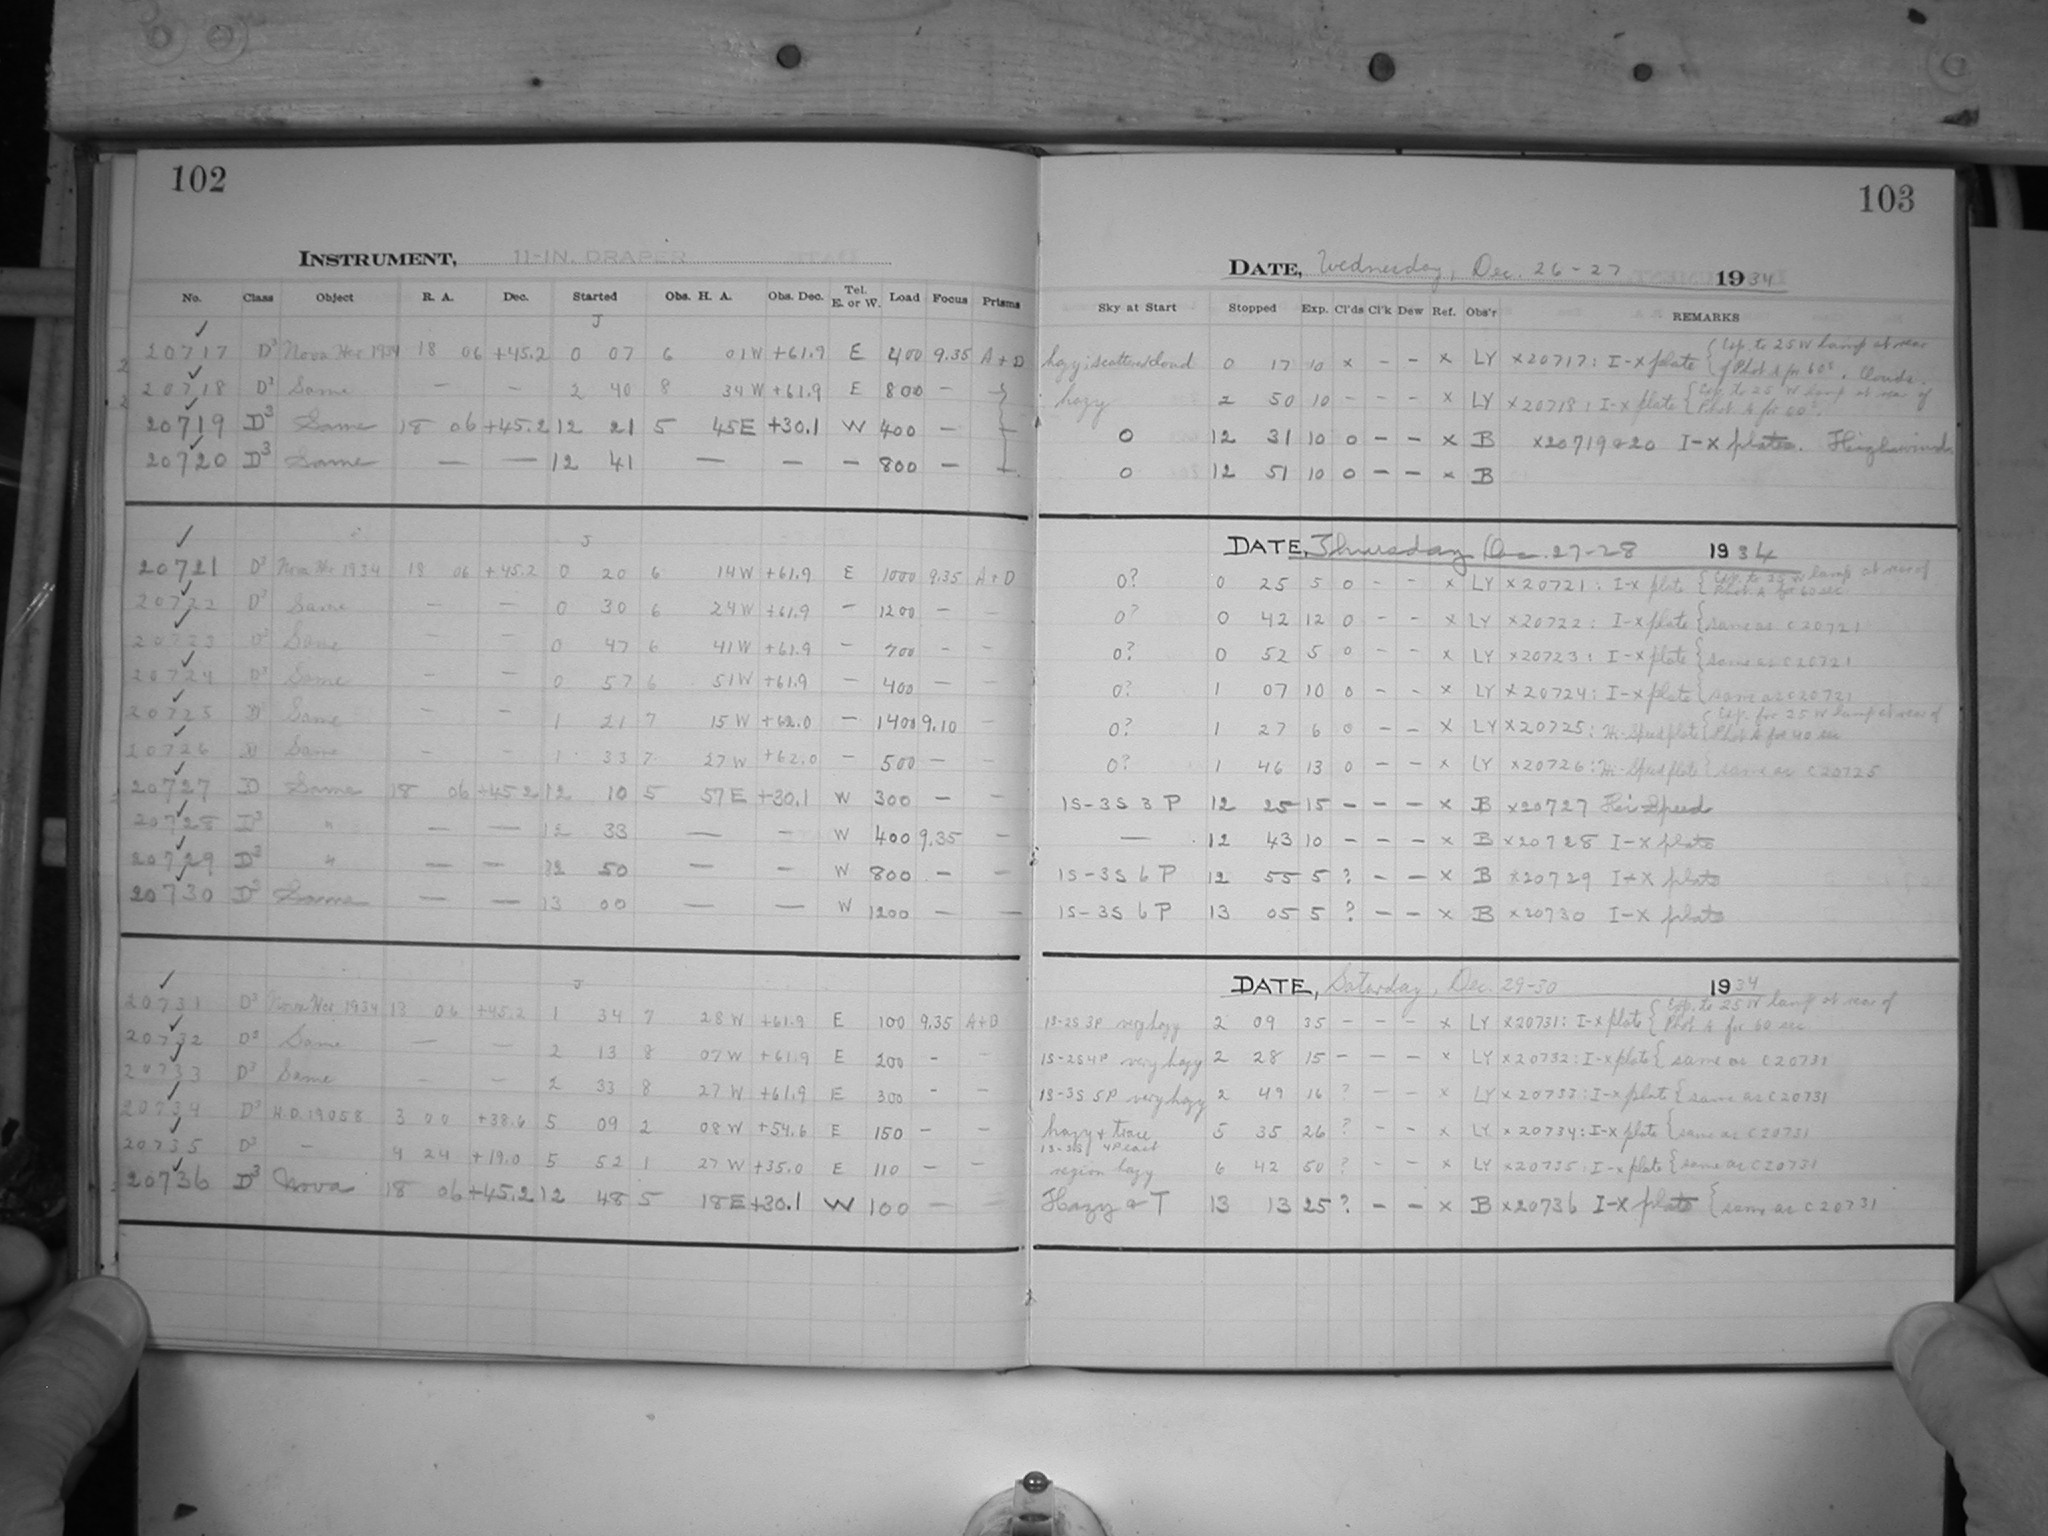 102
INSTRUMENT, 11-IN. DRAPER
No. Class Object R. A. Dec. Started Obs. H. A. Obs. Dec. Tel. E. or W. Load Focus Prisms
J
20717 D3 Nova Her 1934 18 06 +45.2 0 07 6 01W +61.9 E 400 9.35 A+D
20718 D3 Same — — 2 40 8 34W +61.9 E 800 —
20719 D3 Same 18 06 +45.2 12 21 5 45E +30.1 W 400 —
20720 D3 Same — — 12 41 — — — 800 —
J
20721 D3 Nova Her 1934 18 06 +45.2 0 20 6 14W +61.9 E 1000 9.35 A+D
20722 D3 Same — — 0 30 6 24W +61.9 — 1200 — —
20723 D3 Same — — 0 47 6 41W +61.9 — 700 — —
20724 D3 Same — — 0 57 6 51W +61.9 — 400 — —
20725 D Same — — 1 21 7 15W +62.0 — 1400 9.10 —
20726 D Same — — 1 33 7 27W +62.0 — 500 — —
20727 D Same 18 06 +45.2 12 10 5 57E +30.1 W 300 — —
20728 D3 " — — 12 33 — — W 400 9.35 —
20729 D3 " — — 12 50 — — W 800 — —
20730 D3 Same — — 13 00 — — W 1200 — —
J
20731 D3 Nova Her 1934 18 06 +45.2 1 34 7 28W +61.9 E 100 9.35 A+D
20732 D3 Same — — 2 13 8 07W +61.9 E 200 - —
20733 D3 Same — — 2 33 8 27W +61.9 E 300 - —
20734 D3 H.D. 19058 3 00 +38.6 5 09 2 08W +54.6 E 150 — —
20735 D3 — 4 24 +19.0 5 52 1 27W +35.0 E 110 — —
20736 D3 Nova 18 06 +45.2 12 48 5 18E +30.1 W 100 — —
103
DATE, Wednesday, Dec. 26-27 1934
Sky at Start Stopped Exp. Cl'ds Cl'k Dew Ref. Obs'r REMARKS
hazy; scattered cloud 0 17 10 x — — x LY x20717: I-x plate { Exp. to 25W lamp at rear of Phot A for 60s. Clouds.
hazy 2 50 10 — — — x LY x20718: I-x plate { Exp. to 25 W lamp at rear of Phot. A for 60s.
0 12 31 10 0 — — x B x20719+20 I-x plates. High winds
0 12 51 10 0 — — x B
DATE, Thursday Dec. 27-28 1934
0? 0 25 5 0 — — x LY x20721: I-x plate { Exp. to 25 W lamp at rear of Phot. A for 60 sec
0? 0 42 12 0 — — x LY x20722: I-x plate { same as C20721
0? 0 52 5 0 — — x LY x20723: I-x plate { same as C20721
0? 1 07 10 0 — — x LY x20724: I-x plate { same as C20721
0? 1 27 6 0 — — x LY x20725: Hi-Speed plate { Exp. for 25W lamp at rear of Phot A for 40 sec
0? 1 46 13 0 — — x LY x20726: Hi-Speed plate { same as C20725
1S-3S 3P 12 25 15 — — — x B x20727 Hi Speed
— 12 43 10 — — — x B x20728 I-x plate
1S-3S 6P 12 55 5 ? — — x B x20729 I-x plate
1S-3S 6P 13 05 5 ? — — x B x20730 I-x plate
DATE, Saturday, Dec. 29-30 1934
1S-2S 3P very hazy 2 09 35 — — — x LY x20731: I-x plate { Exp. to 25W lamp at rear of Phot. A for 60 sec
1S-2S 4P very hazy 2 28 15 — — — x LY x20732: I-x plate { same as C20731
1S-3S 5P very hazy 2 49 16 ? — — x LY x20733: I-x plate { same as C20731
hazy + trace 5 35 26 ? — — x LY x20734: I-x plate { same as C20731
1S-3S 4P east
region hazy 6 42 50 ? — — x LY x20735: I-x plate { same as C20731
Hazy + T 13 13 25 ? — — x B x20736 I-x plate { same as C20731